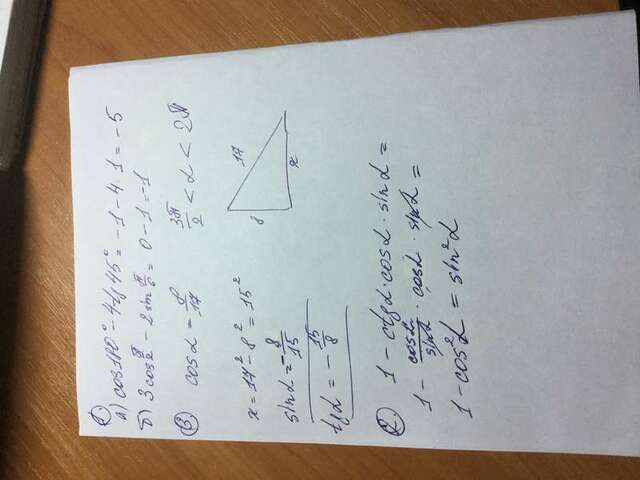 1.
а) cos180° - 4tg45° = -1 - 4 · 1 = -5
б) 3cos π/2 - 2sin π/6 = 0 - 1 = -1
3 cosα = 8/17 3π/2 < α < 2π
x = 17² - 8² = 15²
8 17
x
sinα = -8/15
tgα = -15/8
2. 1 - ctgα · cosα · sinα =
1 - cosα/sinα · cosα · sinα =
1 - cos²α = sin²α